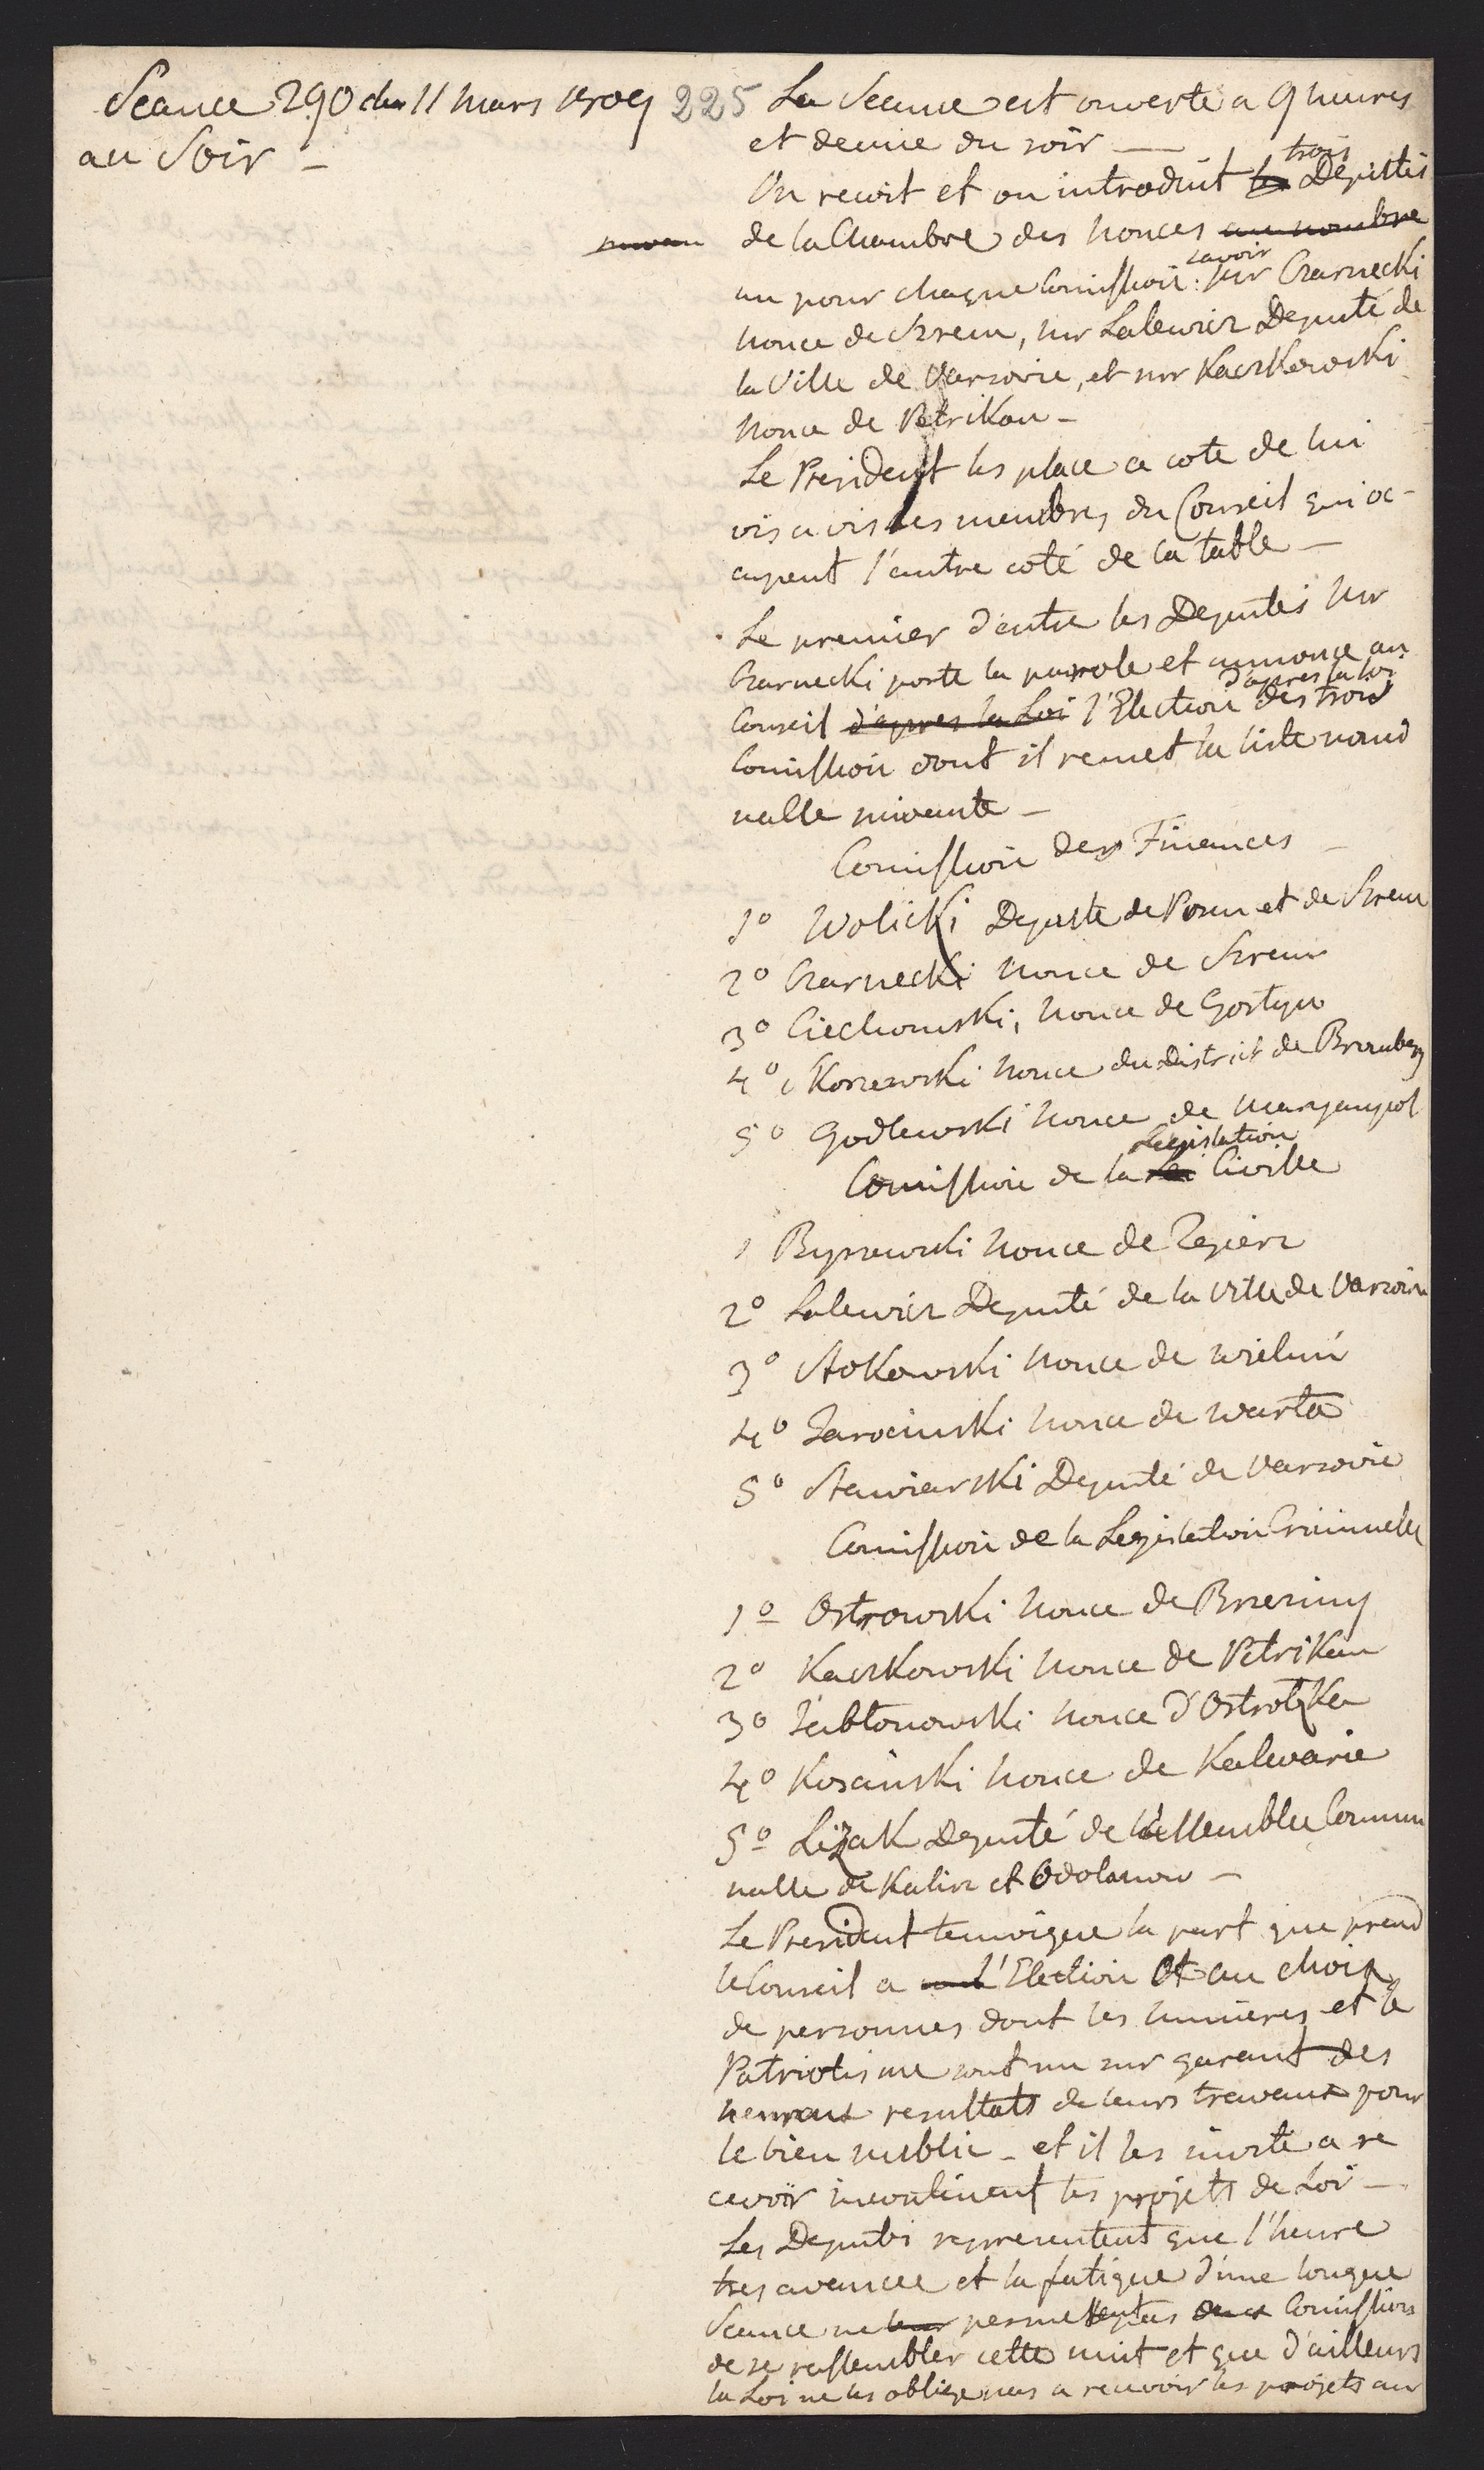 Seance 290 du 11 Mars 1809
au Soir –
225
La Seance est ouverte a 9 heures
et demie du soir —
On recoit et on introduit les trois Deputés
de la Chambre des Nonces au nombre
un pour chaque Comission: savoir Mr Czarnecki
Nonce de Szrem, Mr Lalewicz Deputé de
la Ville de Varsovie, et Mr Kaczkowski
Nonce de Petrikau –
Le President les place a coté de lui
vis a vis les membres du Conseil qui oc-
cupent l'autre coté de la table —
Le premier d'entre les Deputés Mr
Czarnecki porte la parole et annonce au
Conseil d'apres la Loi l'Election d'apres la loi des trois
Comission dont il remet la liste nomi
nalle suivante –
Comission des Finances –
1º Wolicki Deputé de Posen et de Szrem
2º Czarnecki Nonce de Szrem
3º Ciechomski, Nonce de Gostyn
4º Skorzewski Nonce du District de Bromberg
5º Godlewski Nonce de Maryampol
Comission de la Loi Legislation Civille
1 Byszewski Nonce de Zgierz
2º Lalewicz Deputé de la Ville de Varsovie
3º Stokowski Nonce de Wieluń
4º Jarociński Nonce de Warta
5º Stawiarski Deputé de Varsovie
Comission de la Legislation Criminelle
1º Ostrowski Nonce de Brzeziny
2º Kaczkowski Nonce de Petrikau
3º Jabłonowski Nonce d'Ostrołęka
4º Kosciński Nonce de Kalwarie
5º Lizak Deputé de l'assemblee Commu
nalle de Kalisz et Odolanow —
Le President temoigne la part que prend
le Conseil a l'Election et au choix
de personnes dont les lumieres et le
Patriotisme sont un sur garant des
heureux resultats de leurs travaux pour
le bien public – et il les invite a re
cevoir incontinent les projets de Loi —
Les Deputés representent que l'heure
tres avancee et la fatigue d'une longue
Seance ne leur permettent pas aux Comissions
de se rassembler cette nuit et que d'ailleurs
la Loi ne les oblige pas a recevoir les projets au